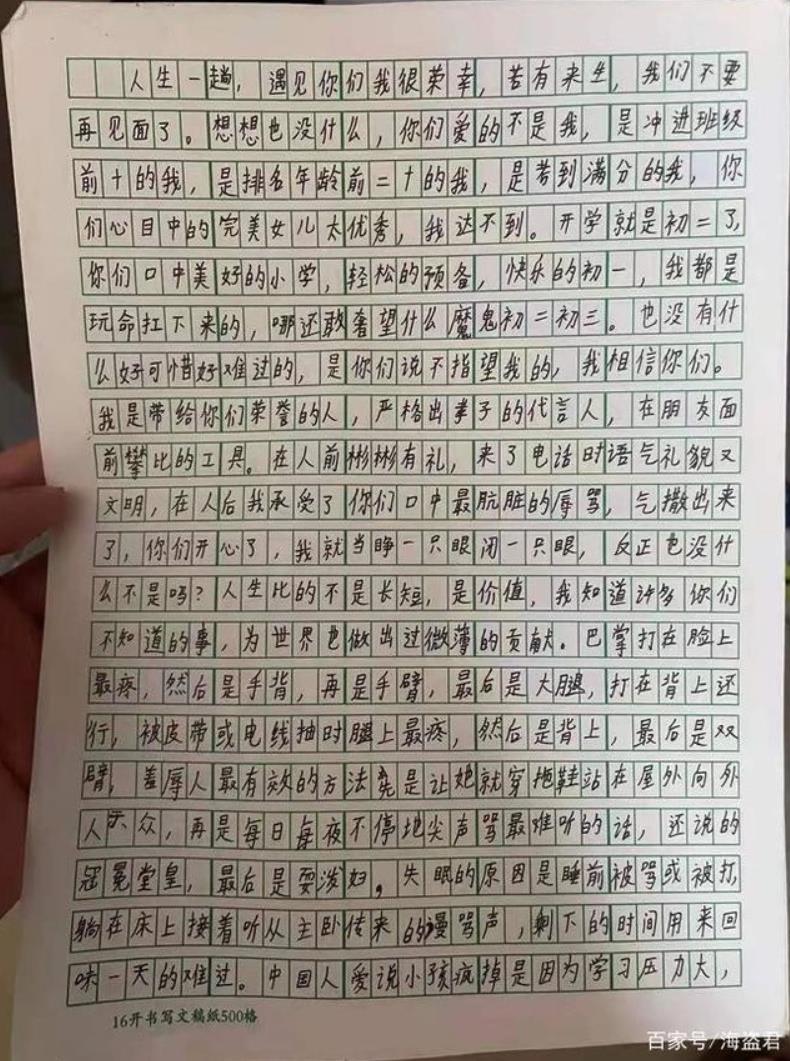 人生一趟，遇见你们我很荣幸，若有来生，我们不要
再见面了。想想也没什么，你们爱的不是我，是冲进班级
前十的我，是排名年龄前二十的我，是考到满分的我，你
们心目中的完美女儿太优秀，我达不到。开学就是初二了，
你们口中美好的小学，轻松的预备，快乐的初一，我都是
玩命扛下来的，哪还敢奢望什么魔鬼初二初三。也没有什
么好可惜好难过的，是你们说不指望我的，我相信你们。
我是带给你们荣誉的人，严格出孝子的代言人，在朋友面
前攀比的工具。在人前彬彬有礼，来了电话时语气礼貌又
文明，在人后我承受了你们口中最肮脏的辱骂，气撒出来
了，你们开心了，我就当睁一只眼闭一只眼，反正也没什
么不是吗？人生比的不是长短，是价值，我知道许多你们
不知道的事，为世界也做出过微薄的贡献。巴掌打在脸上
最疼，然后是手背，再是手臂，最后是大腿，打在背上还
行，被皮带或电线抽时腿上最疼，然后是背上，最后是双
臂，羞辱人最有效的方法是让她就穿拖鞋站在屋外向外
人示众，再是每日每夜不停地尖声骂最难听的话，还说的
冠冕堂皇，最后是耍泼妇。失眠的原因是睡前被骂或被打，
躺在床上接着听从主卧传来的谩骂声，剩下的时间用来回
味一天的难过。中国人爱说小孩疯掉是因为学习压力大，
16开书写文稿纸500格
百家号/海盗君